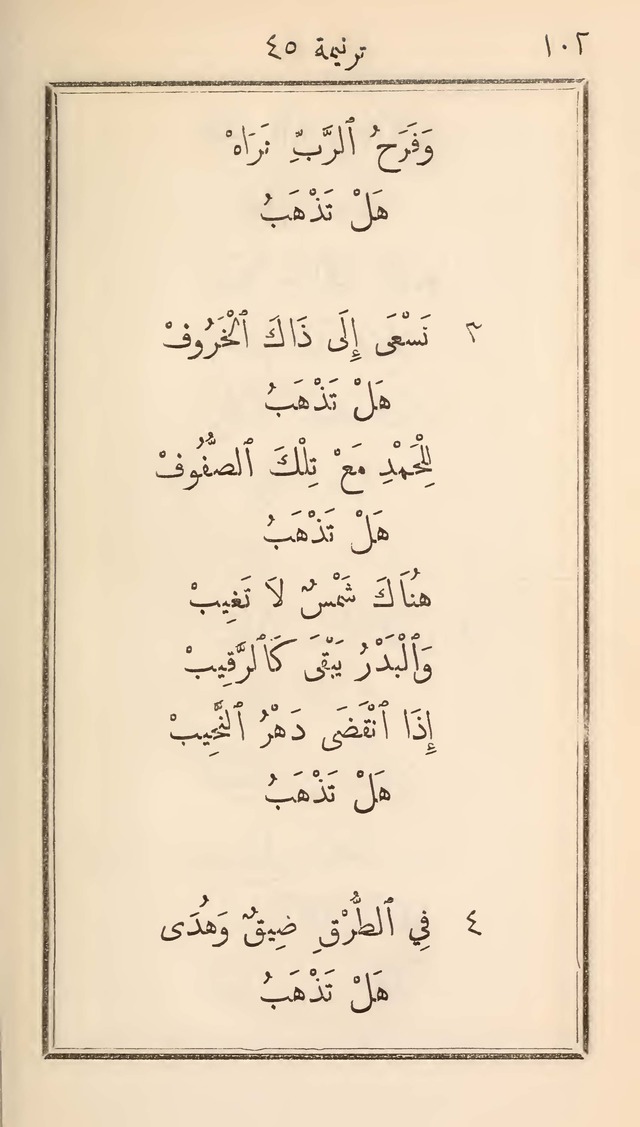 ١٠٢ ترنيمة ٤٥
وَفَرَحُ ٱلرَّبِّ نَرَاهْ
هَلْ تَذْهَبُ
٣ نَسْعَى إِلَى ذَاكَ ٱلْخَرُوفْ
هَلْ تَذْهَبُ
لِلْحَمْدِ مَعْ تِلْكَ ٱلصُّفُوفْ
هَلْ تَذْهَبُ
هُنَاكَ شَمْسٌ لاَ تَغِيبْ
وَٱلْبَدْرُ يَبْقَى كَٱلرَّقِيبْ
إِذَا ٱنْقَضَى دَهْرُ ٱلنَّحِيبْ
هَلْ تَذْهَبُ
٤ فِي ٱلطُّرْقِ ضِيقٌ وَهُدَى
هَلْ تَذْهَبُ